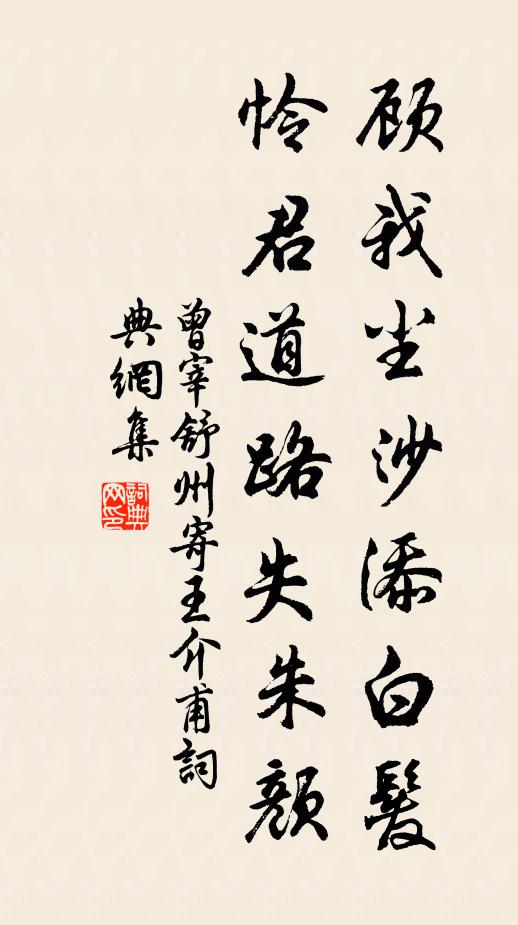 顾我尘沙添白髪
怜君道路失朱颜
曾宰舒州寄王介甫詞
典網集
詞典
网印